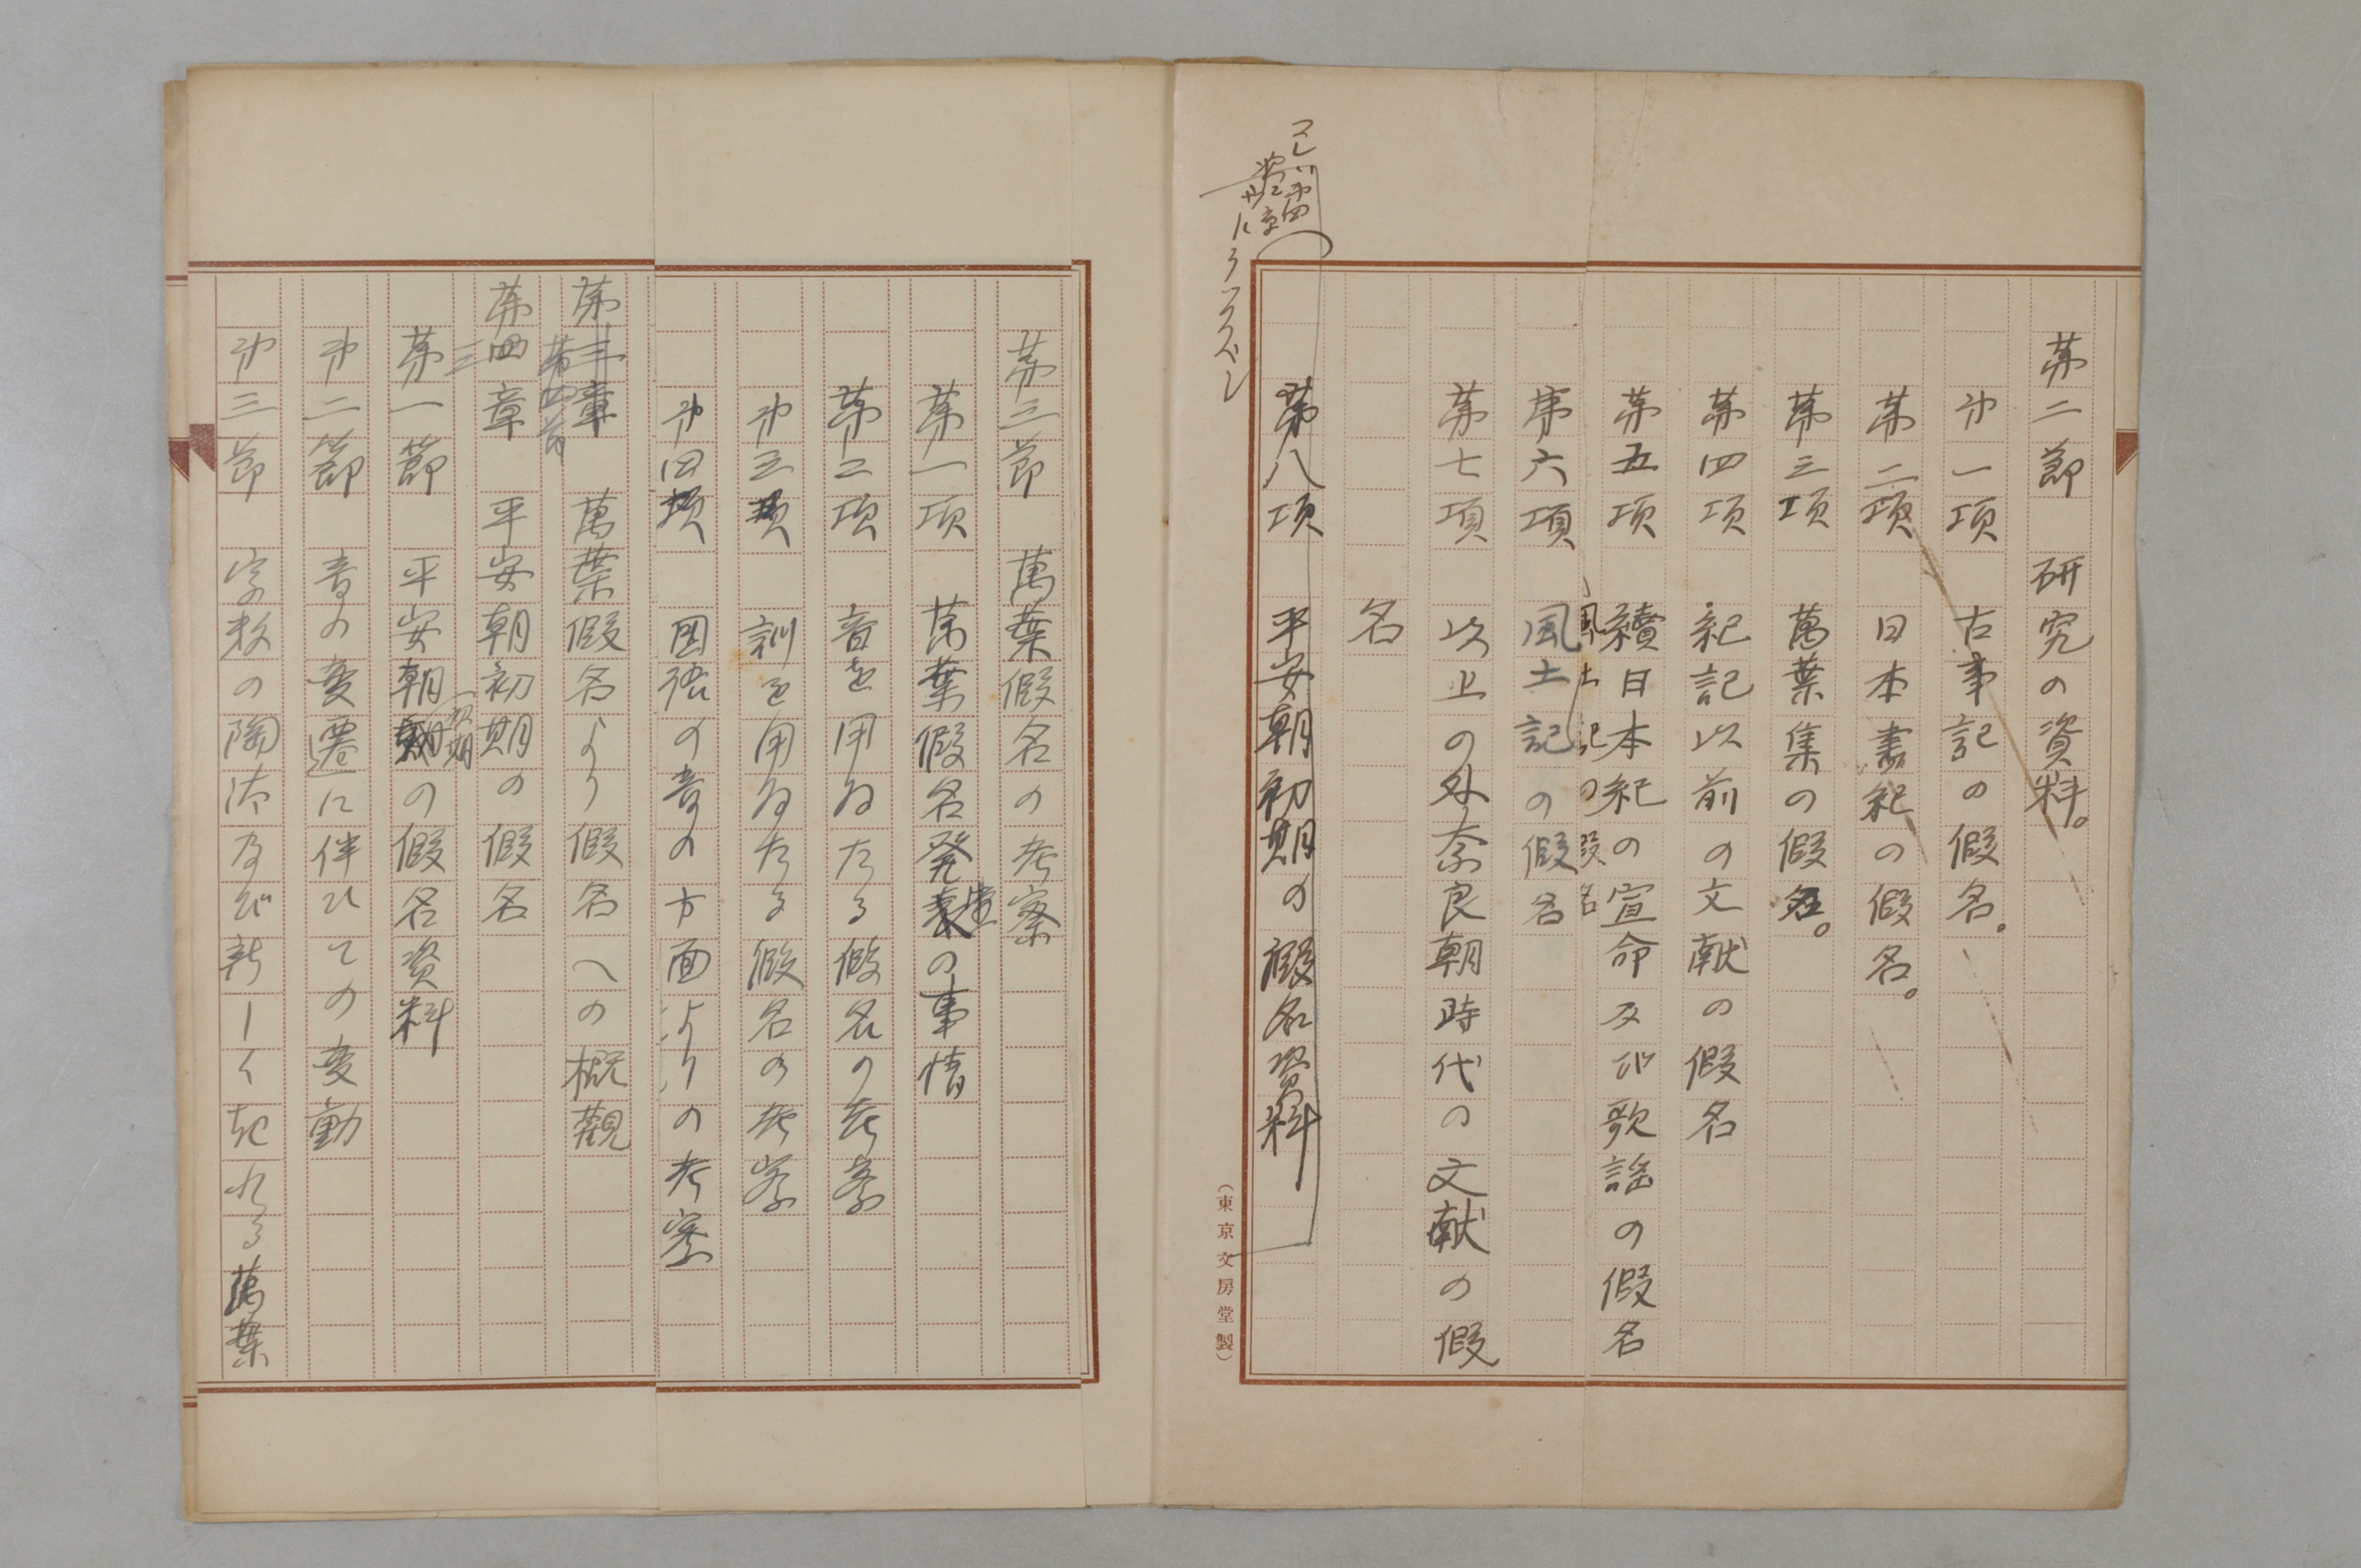 第二節　研究の資料。
第一項　古事記の假名。
第二項　日本書紀の假名。
第三項　萬葉集の假名。
第四項　紀記以前の文献の假名
第五項　續日本紀の宣命及び歌謡の假名
風土記の假名
第六項　風土記の假名
第七項　以上の外奈良朝時代の文献の假
名
第八項　平安朝初期の假名資料
コレハ第四
第二章
ニウツスベシ
（東京文房堂製）
第三節　萬葉假名の考察
第一項　萬葉假名発達の事情
第二項　音を用ゐたる假名の考察
第三項　訓を用ゐたる假名の考察
第四項　国語の音の方面よりの考察
第三章　萬葉假名より假名への概觀
第四節
第四章　平安朝初期の假名
三
第一節　平安朝の假名資料
初期
第二節　音の変遷に伴ひての変動
第三節　字数の陶汰及び新しく起れる萬葉